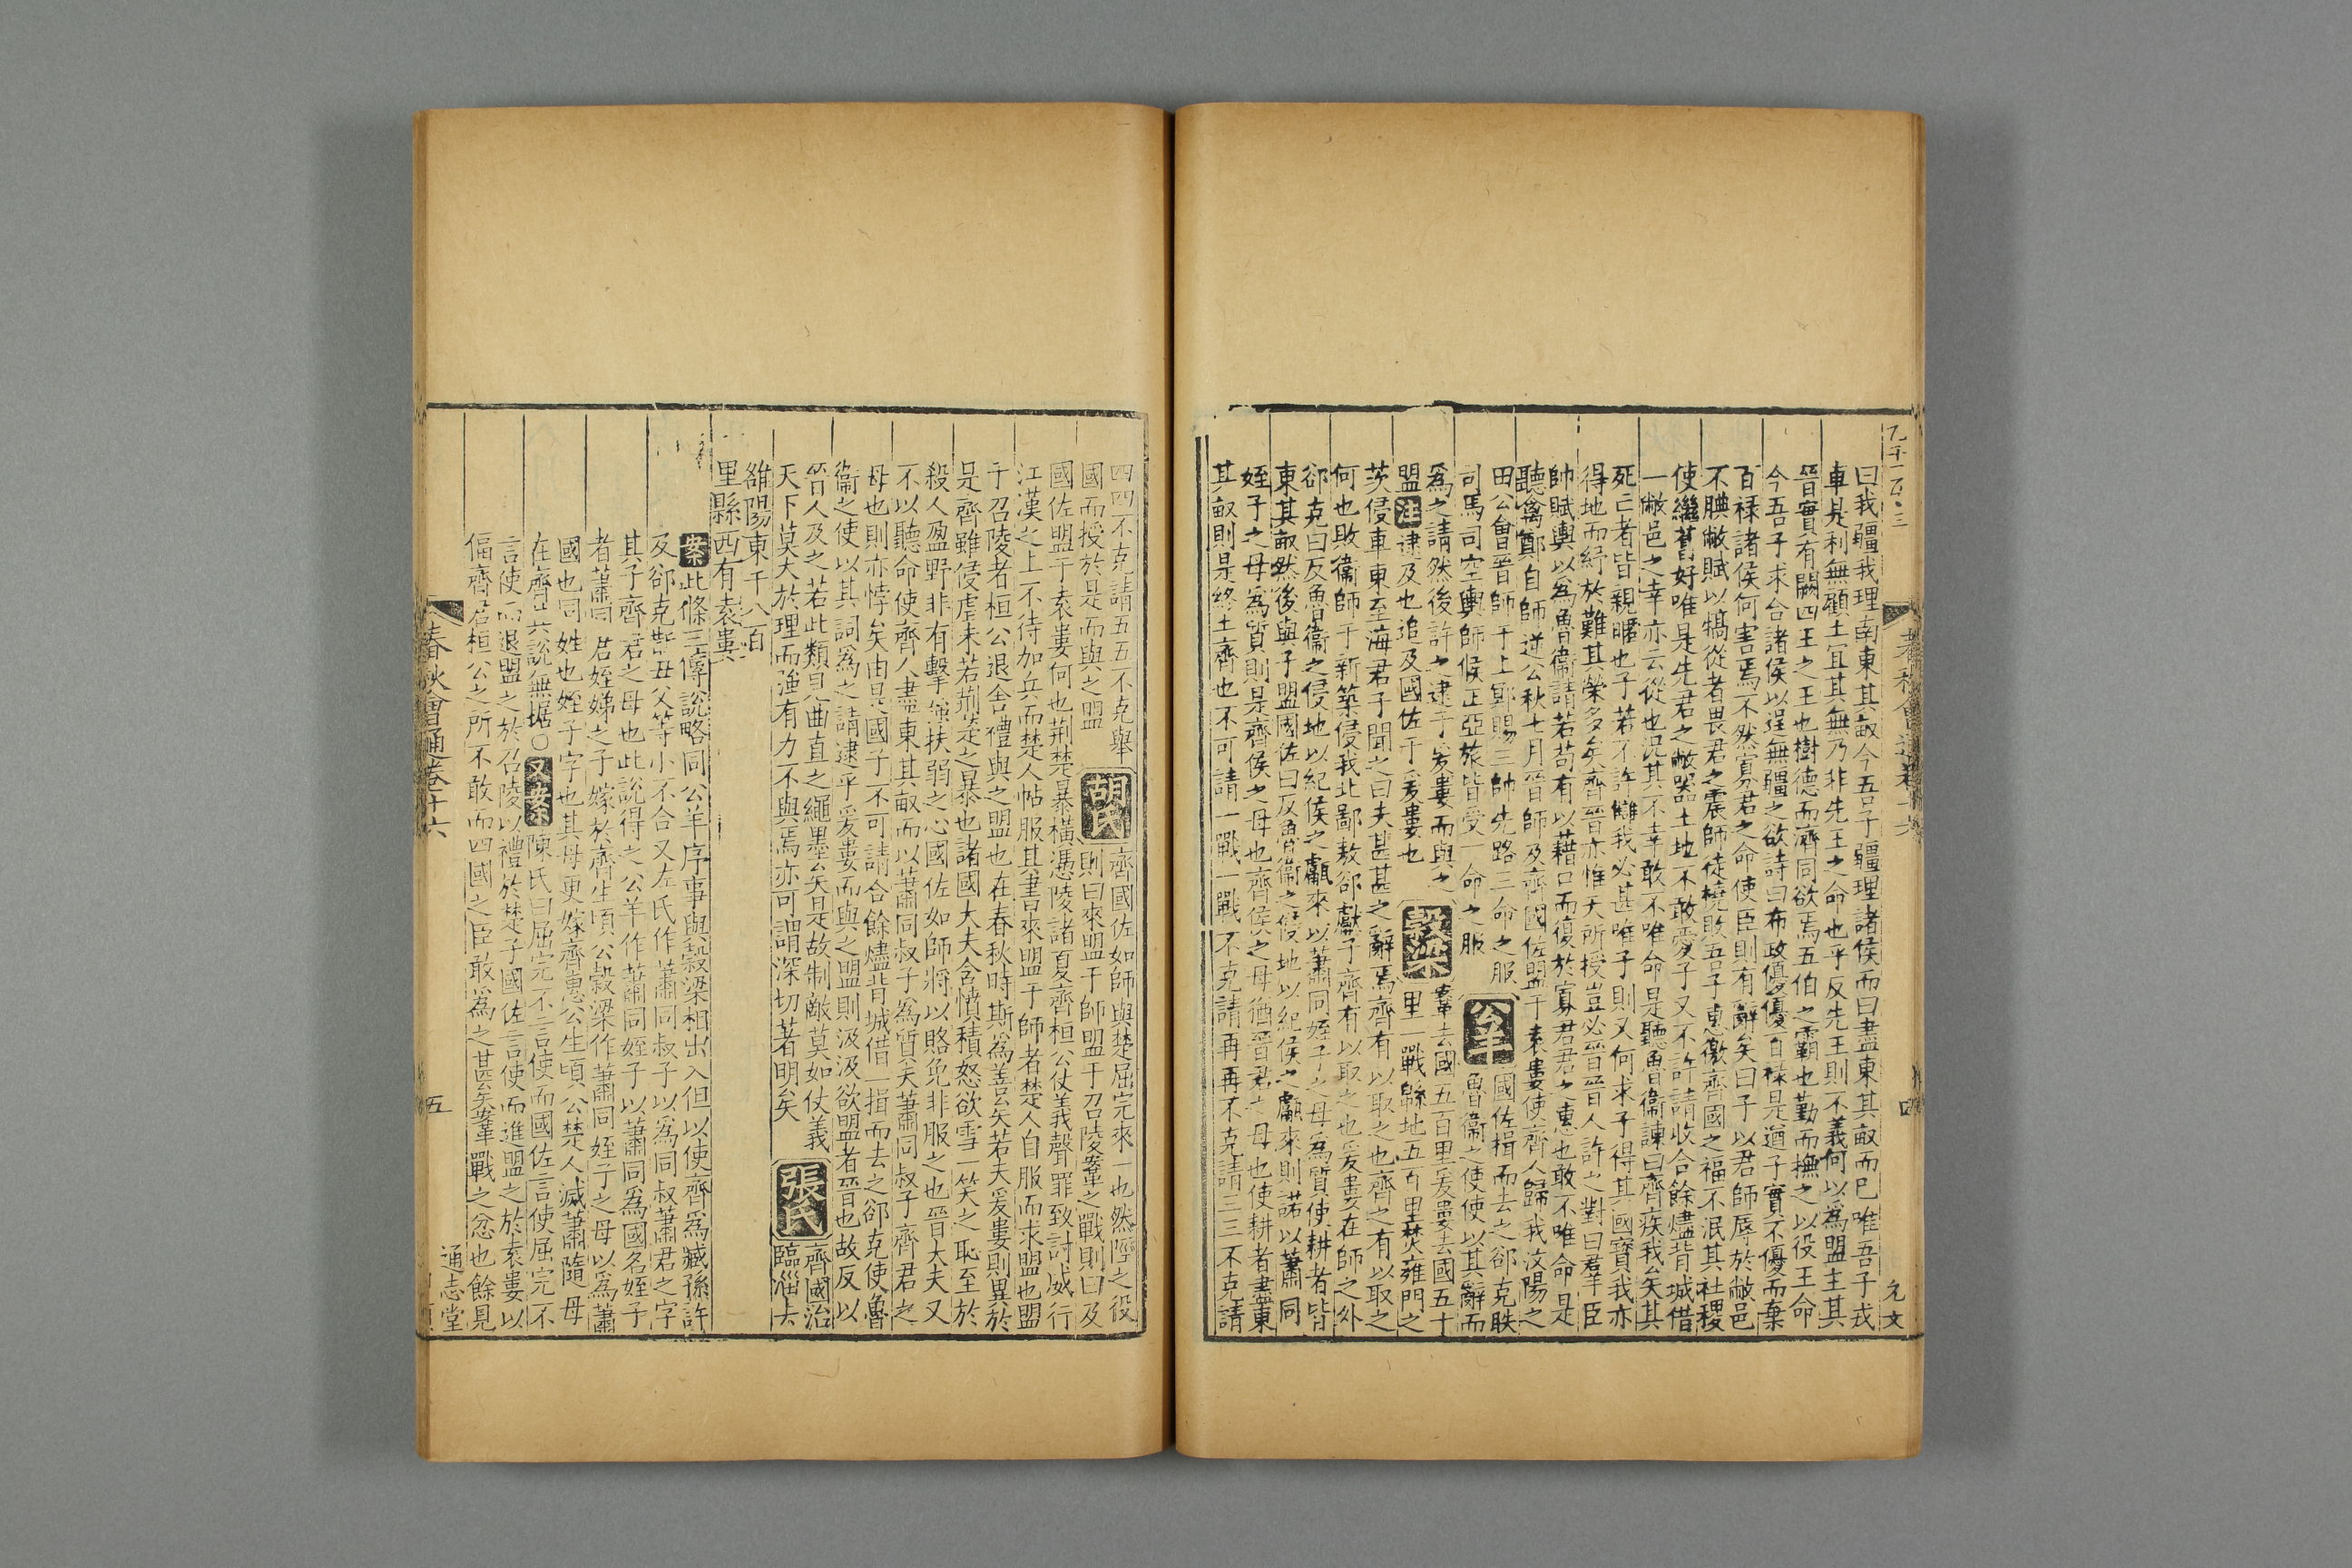 九千一百〇三
春秋會通卷十六
四
允文
曰我疆我理南東其畝今吾子疆理諸侯而曰盡東其畝而已唯吾子戎
車是利無顧土宜其無乃非先王之命也乎反先王則不義何以爲盟主其
晉實有闕四王之王也樹德而濟同欲焉五伯之霸也勤而撫之以役王命
今吾子求合諸侯以逞無疆之欲詩曰布政優優百祿是遒子實不優而棄
百祿諸侯何害焉不然寡君之命使臣則有辭矣曰子以君師辱於敝邑
不腆敝賦以犒從者畏君之震師徒橈敗吾子惠徼齊國之福不泯其社稷
使繼舊好唯是先君之敝器土地不敢愛子又不許請收合餘燼背城借
一敝邑之幸亦云從也況其不幸敢不唯命是聽魯衞諫曰齊疾我矣其
死亡者皆親暱也子若不許讎我必甚唯子則又何求子得其國寶我亦
得地而紓於難其榮多矣齊晉亦惟天所授豈必晉晉人許之對曰羣臣
帥賦輿以爲魯衞請若苟有以藉口而復於寡君君之惠也敢不唯命是
聽禽鄭自師逆公秋七月晉師及齊國佐盟于袁婁使齊人歸我汶陽之
田公會晉師于上鄍賜三帥先路三命之服
司馬司空輿師候正亞旅皆受一命之服
公羊
國佐揖而去之郤克眣
魯衞之使使以其辭而
爲之請然後許之逮于爰婁而與之
盟注逮及也追及國佐于爰婁也
穀梁
鞌去國五百里爰婁去國五十
里一戰緜地五百里焚雍門之
茨侵車東至海君子聞之曰夫甚甚之辭焉齊有以取之也齊之有以取之
何也敗衞師于新築侵我北鄙敖郤獻子齊有以取之也爰婁在師之外
郤克曰反魯衞之侵地以紀侯之甗來以蕭同姪子之母爲質使耕者皆
東其畝然後與子盟國佐曰反魯衞之侵地以紀侯之甗來則諾以蕭同
姪子之母爲質則是齊侯之母也齊侯之母猶晉君之母也使耕者盡東
其畝則是終土齊也不可請一戰一戰不克請再再不克請三三不克請
四四不克請五五不克舉
國而授於是而與之盟
胡氏
齊國佐如師與楚屈完來一也然陘之役
則曰來盟于師盟于召陵鞌之戰則曰及
國佐盟于袁婁何也荆楚暴橫憑陵諸夏齊桓公仗義聲罪致討威行
江漢之上不待加兵而楚人帖服其書來盟于師者楚人自服而求盟也盟
于召陵者桓公退舍禮與之盟也在春秋時斯爲善矣若夫爰婁則異於
是齊雖侵虐未若荆楚之暴也諸國大夫含憤積怒欲雪一笑之恥至於
殺人盈野非有擊強扶弱之心國佐如師將以賂免非服之也晉大夫又
不以聽命使齊人盡東其畝而以蕭同叔子爲質夫蕭同叔子齊君之
母也則亦悖矣由是國子不可請合餘燼背城借一揖而去之郤克使魯
衞之使以其詞爲之請逮乎爰婁而與之盟則汲汲欲盟者晉也故反以
晉人及之若此類見曲直之繩墨矣是故制敵莫如仗義
天下莫大於理而強有力不與焉亦可謂深切著明矣
張氏
齊國治
臨淄去
雒陽東千八百
里縣西有袁婁
案此條三傳說略同公羊序事與穀梁相出入但以使齊爲臧孫許
及郤克與丑父等小不合又左氏作蕭同叔子以爲同叔蕭君之字
其子齊君之母也此說得之公羊作蕭同姪子以蕭同爲國名姪子
者蕭同君姪娣之子嫁於齊生頃公穀梁作蕭同姪子之母以爲蕭
國也同姓也姪子字也其母更嫁齊惠公生頃公楚人滅蕭隨母
在齊此說無据〇又案陳氏曰屈完不言使而國佐言使屈完不
言使而退盟之於召陵以禮於楚子國佐言使而進盟之於袁婁以
偪齊君桓公之所不敢而四國之臣敢爲之甚矣鞌戰之忿也餘見
春秋會通卷十六
五
通志堂